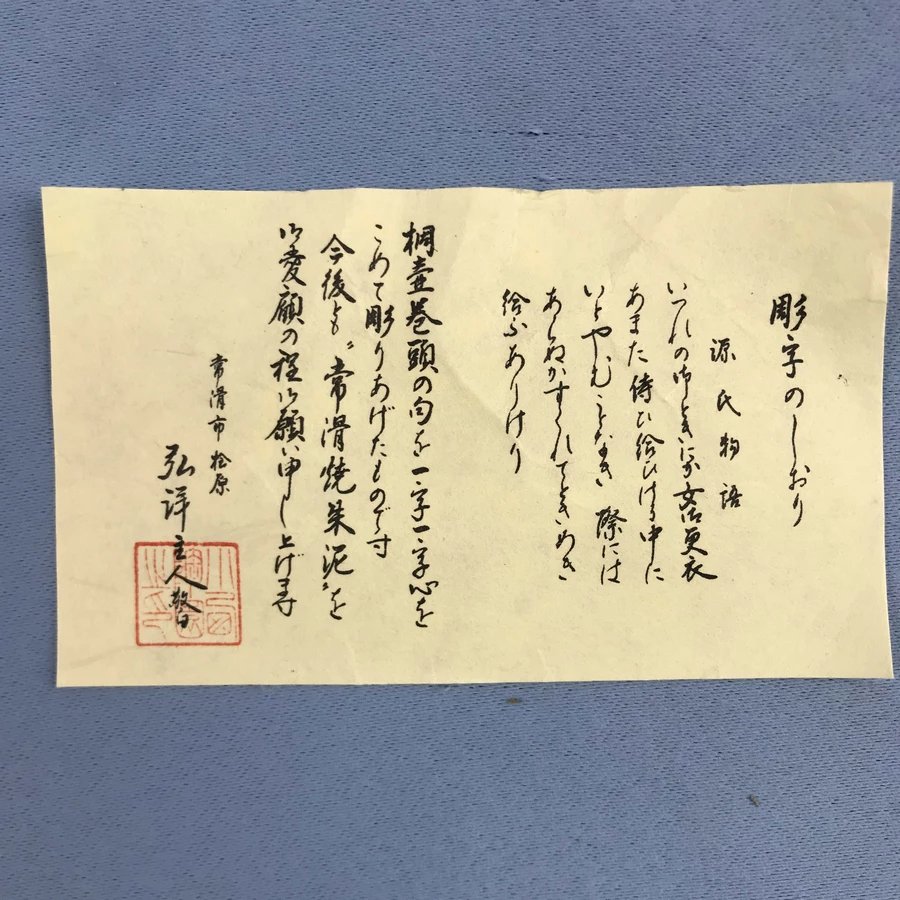 彫字のしおり
源氏物語
いつれの御ときにか女御更衣
あまた侍ひ給ひける中に
いとやむことなき際には
あらぬかすくれてときめき
給ふありけり
桐壺巻頭の句を一字一字心を
こめて彫りあげたもので寸
今後とも“常滑焼朱泥”を
御愛顧の程御願い申し上げ寸
常滑市松原
弘詳主人敬白